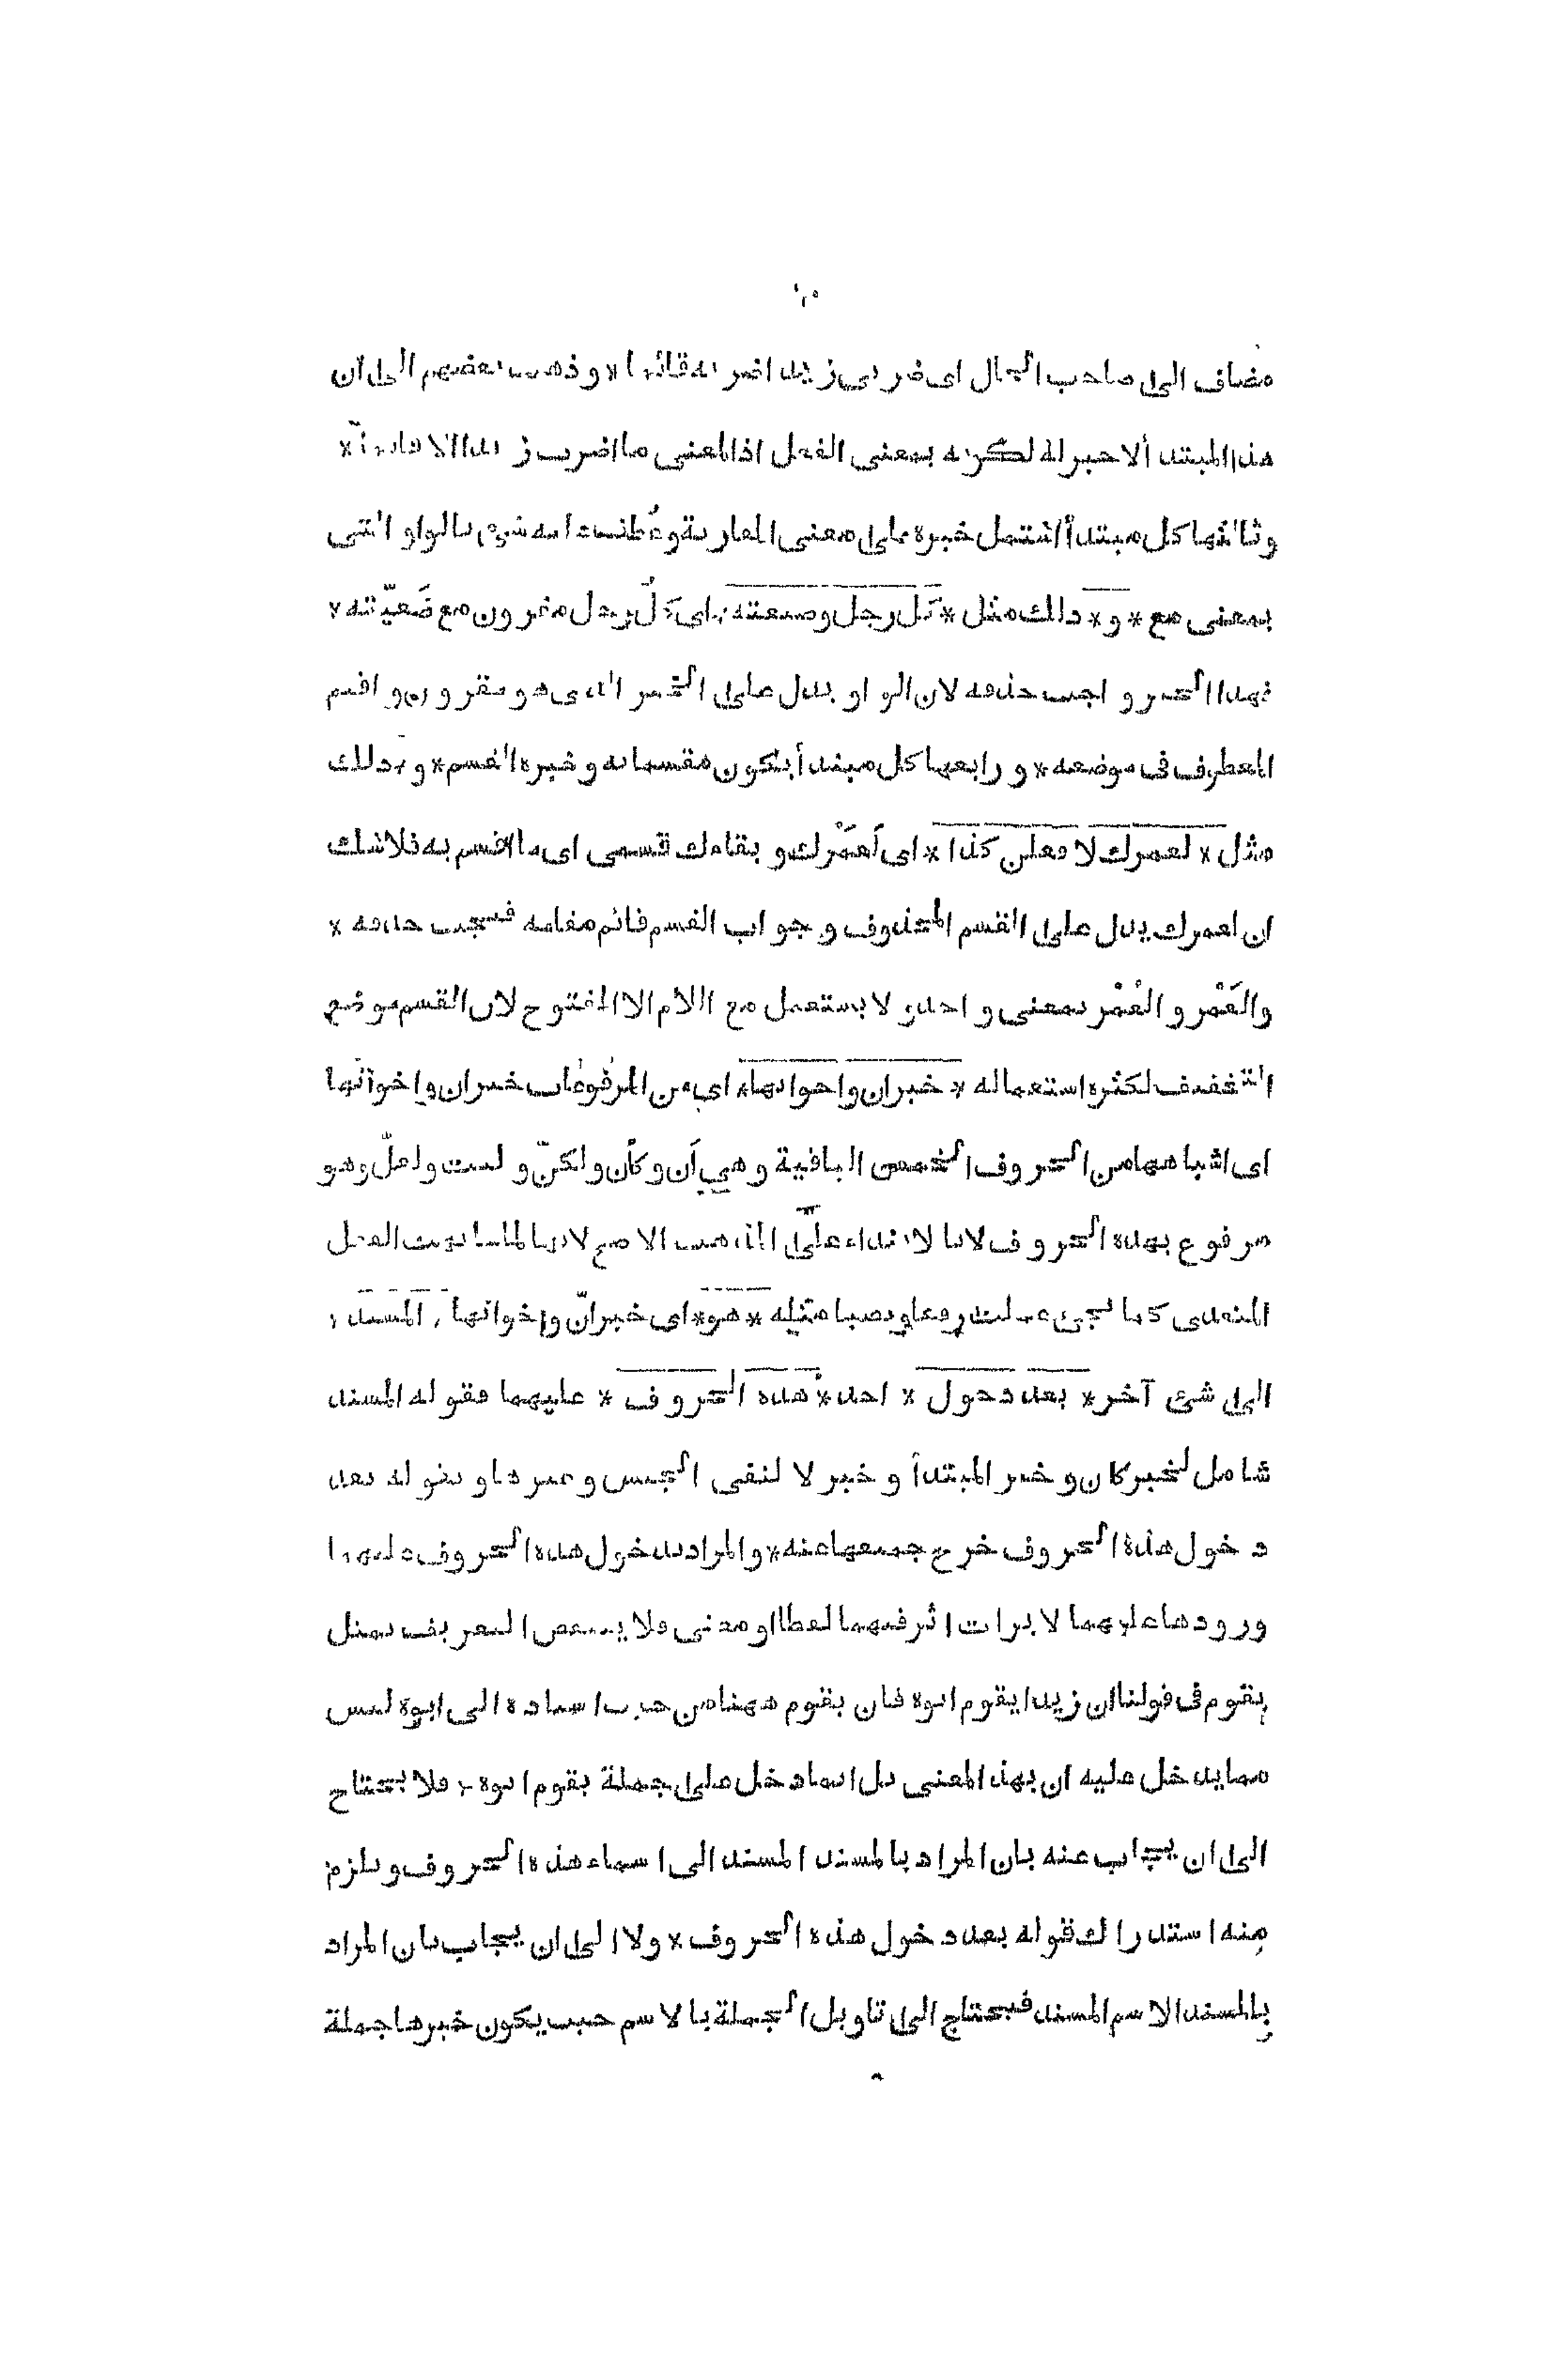 مضاف الى صاحب الحال اى ضربى زيدا ضربه قائما * و ذهب بعضهم الى ان
هذا المبتدأ لا خبر له لكونه بمعنى الفعل اذ المعنى ما اضرب زيدا الا قائما *
و ثالثها كل مبتدأ اشتمل خبره على معنى المقارنة و عُطف عليه شئ بالواو التى
بمعنى مع * و * ذلك مثل * كل رجل و ضيعته * اى كلّ رجل مقرون مع ضَيعته *
فهذا الخبر و اجب حذفه لان الواو يدل على الخبر الذى هو مقرون و اقيم
المعطوف فى موضعه * و رابعها كل مبتدأ يكون مقسما به و خبره القسم * و ذلك
مثل * لعمرك لا فعلن كذا * اى لَعَمْرك و بقاءك قسمى اى ما اقسم به فلا شك
ان لعمرك يدل على القسم المحذوف و جواب القسم قائم مقامه فيجب حذفه *
والعَمْر و العُمْر بمعنى و احد و لا يستعمل مع اللام الا المفتوح لان القسم موضع
التخفيف لكثرة استعماله * خبر ان و اخواتها * اى من المرفوعات خبر ان و اخواتها
اى اشباهها من الحروف الخمس الباقية و هى أن و كأن و لكنّ و ليت و لعلّ و هو
مرفوع بهذه الحروف لا بالابتداء على المذهب الاصح لانها لما شابهت الفعل
المتعدى كما يجئ عملت رفعا و نصبا مثله * هو * اى خبر انّ و اخواتها * المسند *
الى شئ آخر * بعد دخول * احد * هذه الحروف * عليهما فقوله المسند
شامل لخبر كان و خبر المبتدأ و خبر لا لنفى الجنس و غيرها و بقوله بعد
دخول هذه الحروف خرج جميعها عنه * و المراد بدخول هذه الحروف عليهما
ورودها عليهما لا يراث اثر فيهما لفظا او معنى فلا ينتقض التعريف بمثل
يقوم فى قولنا ان زيدا يقوم ابوه فان يقوم ههنا من حيث اسناده الى ابوه ليس
مما يدخل عليه ان بهذا المعنى بل انما دخل على جملة يقوم ابوه * فلا يحتاج
الى ان يجاب عنه بان المراد بالمسند المسند الى اسماء هذه الحروف و يلزم
منه استدراك قوله بعد دخول هذه الحروف * ولا الى ان يجاب بان المراد
بالمسند الاسم المسند فيحتاج الى تاويل الجملة بالاسم حيث يكون خبرها جملة